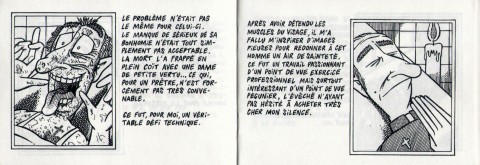 LE PROBLÈME N'ÉTAIT PAS
LE MÊME POUR CELUI-CI.
LE MANQUE DE SÉRIEUX DE SA
BONHOMIE N'ÉTAIT TOUT SIM-
PLEMENT PAS ACCEPTABLE.
LA MORT L'A FRAPPÉ EN
PLEIN COÏT AVEC UNE DAME
DE PETITE VERTU... CE QUI,
POUR UN PRÊTRE, N'EST FOR-
CÉMENT PAS TRÈS CONVE-
NABLE.
CE FUT, POUR MOI, UN VÉRI-
TABLE DÉFI TECHNIQUE.
APRÈS AVOIR DÉTENDU LES
MUSCLES DU VISAGE, IL M'A
FALLU M'INSPIRER D'IMAGES
PIEUSES POUR REDONNER À CET
HOMME UN AIR DE SAINTETÉ.
CE FUT UN TRAVAIL PASSIONNANT
D'UN POINT DE VUE EXERCICE
PROFESSIONNEL MAIS SURTOUT
INTÉRESSANT D'UN POINT DE VUE
PÉCUNIER, L'ÉVÊCHÉ N'AYANT
PAS HÉSITÉ À ACHETER TRÈS
CHER MON SILENCE.